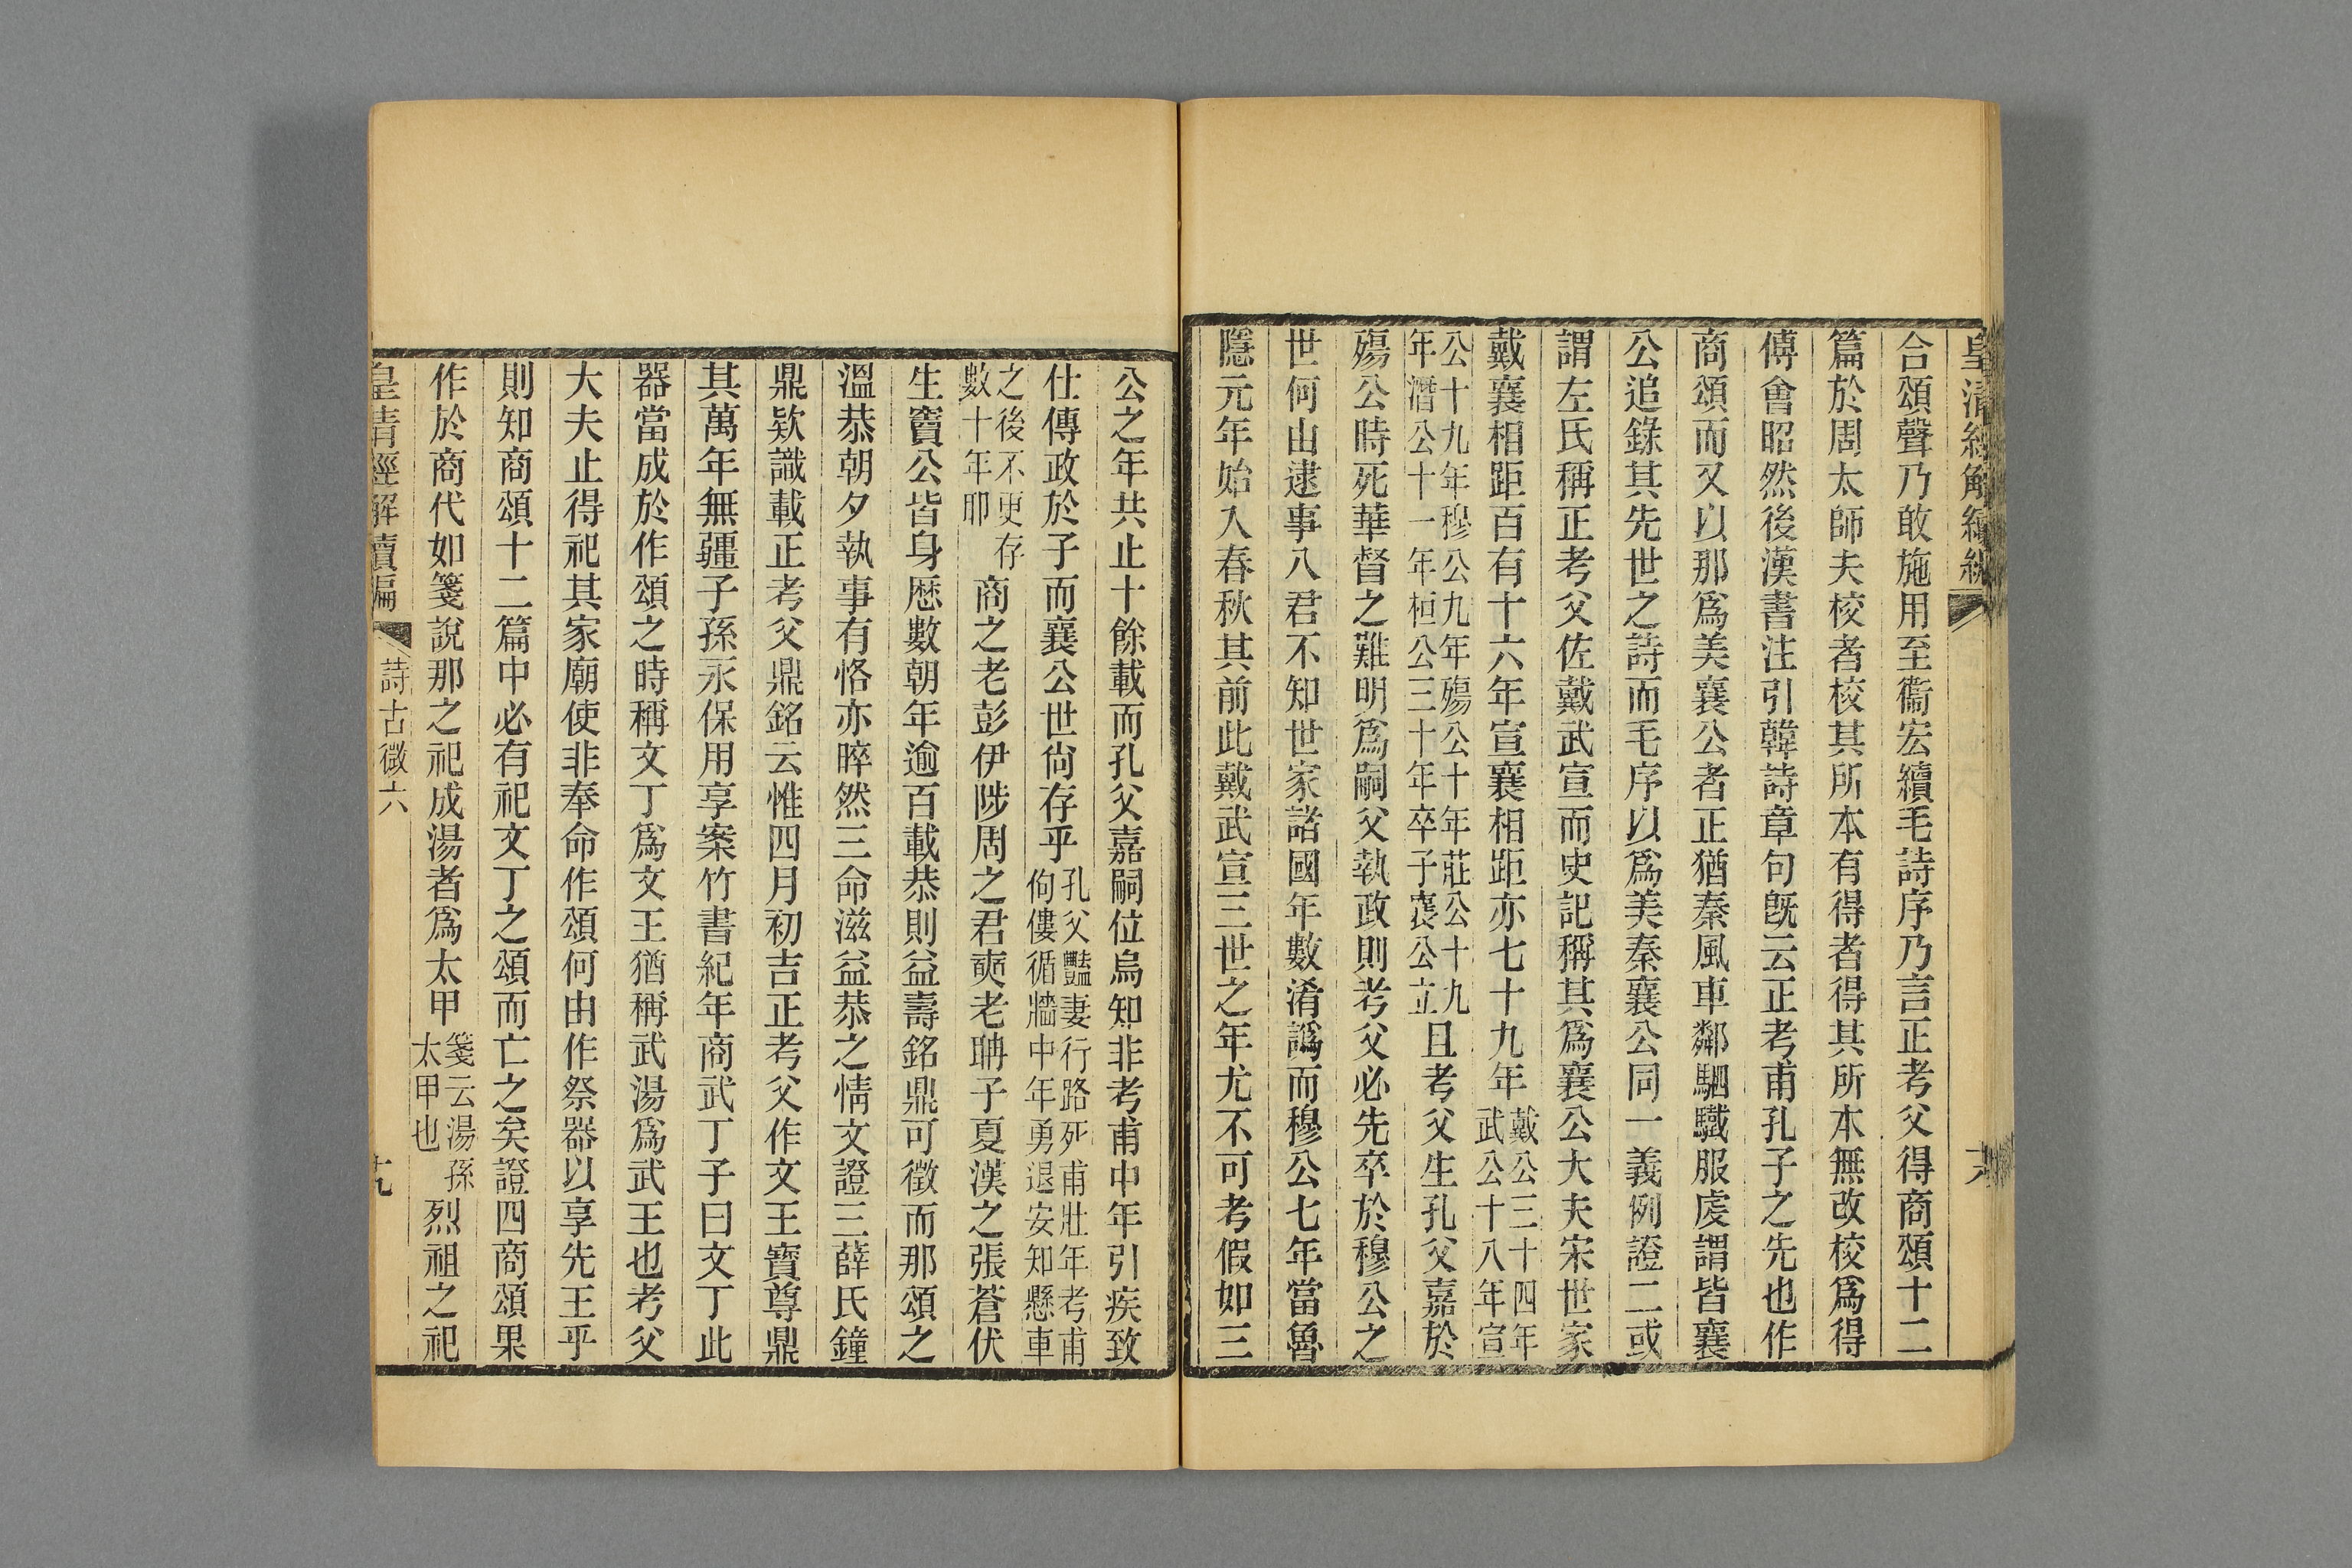 皇清經解續編
合頌聲乃敢施用至衞宏續毛詩序乃言正考父得商頌十二
篇於周太師夫校者校其所本有得者得其所本無改校爲得
傅會昭然後漢書注引韓詩章句旣云正考甫孔子之先也作
商頌而又以那爲美襄公者正猶秦風車鄰駟驖服虔謂皆襄
公追錄其先世之詩而毛序以爲美秦襄公同一義例證二或
謂左氏稱正考父佐戴武宣而史記稱其爲襄公大夫宋世家
戴襄相距百有十六年宣襄相距亦七十九年戴公三十四年武公十八年宣
公十九年穆公九年殤公十年莊公十九年湣公十一年桓公三十年卒子襄公立且考父生孔父嘉於
殤公時死華督之難明爲嗣父執政則考父必先卒於穆公之
世何由逮事八君不知世家諸國年數淆譌而穆公七年當魯
隱元年始入春秋其前此戴武宣三世之年尤不可考假如三
公之年共止十餘載而孔父嘉嗣位烏知非考甫中年引疾致
仕傳政於子而襄公世尙存乎孔父豔妻行路死甫壯年考甫佝僂循牆中年勇退安知懸車
之後不更存數十年耶商之老彭伊陟周之君奭老聃子夏漢之張蒼伏
生竇公皆身歷數朝年逾百載恭則益壽銘鼎可徵而那頌之
溫恭朝夕執事有恪亦睟然三命滋益恭之情文證三薛氏鐘
鼎欵識載正考父鼎銘云惟四月初吉正考父作文王寶尊鼎
其萬年無疆子孫永保用享案竹書紀年商武丁子曰文丁此
器當成於作頌之時稱文丁爲文王猶稱武湯爲武王也考父
大夫止得祀其家廟使非奉命作頌何由作祭器以享先王乎
則知商頌十二篇中必有祀文丁之頌而亡之矣證四商頌果
作於商代如箋說那之祀成湯者爲太甲箋云湯孫太甲也烈祖之祀
皇清經解續編
詩古微六